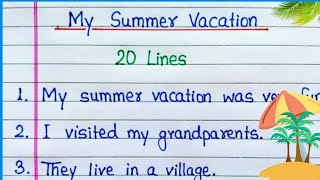 My Summer Vacation
20 Lines
1. My summer vacation was very
2. I visited my grandparents.
3. They live in a village.